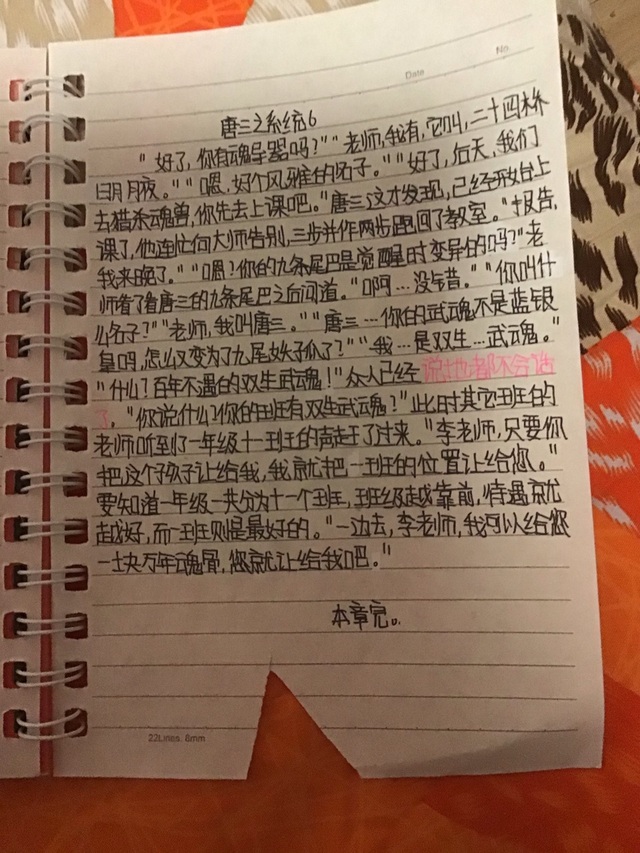 Date
No.
唐三之系统6
"好了,你有魂导器吗?""老师,我有,它叫,二十四桥
明月夜。""嗯,好个风雅的名子。""好了,后天,我们
去猎杀魂兽,你先去上课吧。"唐三这才发现,已经开始上
课了,他连忙向大师告别,三步并作两步跑回了教室。"报告,
我来晚了。""嗯?你的九条尾巴是觉醒时变异的吗?"老
师看了看唐三的九条尾巴之后问道。"啊…没错。""你叫什
么名子?""老师,我叫唐三。""唐三…你的武魂不是蓝银
皇吗,怎么又变为了九尾妖狐了?""我…是双生…武魂。"
"什么!百年不遇的双生武魂!"众人已经说地都不会话
了。"你说什么!你的班有双生武魂?"此时其它班的
老师听到了一年级十一班的声走了过来。"李老师,只要你
把这个孩子让给我,我就把一班的位置让给你。"
要知道一年级一共分为十一个班,班级越靠前,待遇就
越好,而一班则是最好的。"一边去,李老师,我可以给您
一块万年魂骨,您就让给我吧。"
本章完。
22Lines. 8mm